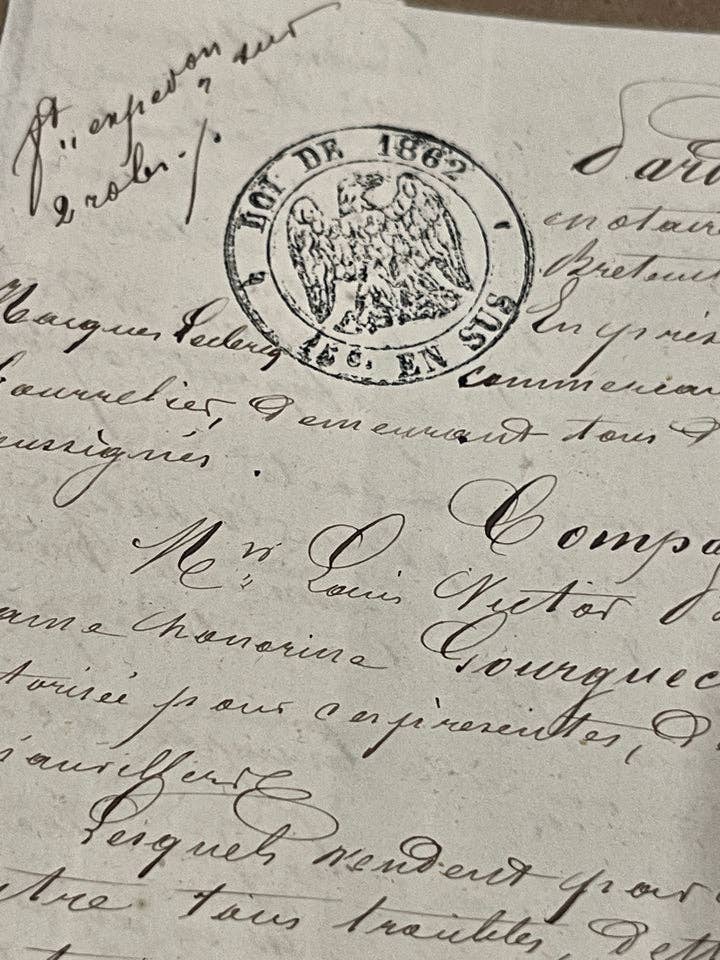 expedon sur
2 roles
LOI DE 1862
15 C. EN SUS
Pard
notaire
Breteui
En prés
Jacques Leclercq
commercan
ourrelier, Demeurant tous D
oussignés.
Compa
Mr Louis Victor
ame honorine Gourguec
torisée pour ces présentes, D
Lesquels vendent par
tre tous troubles, dett